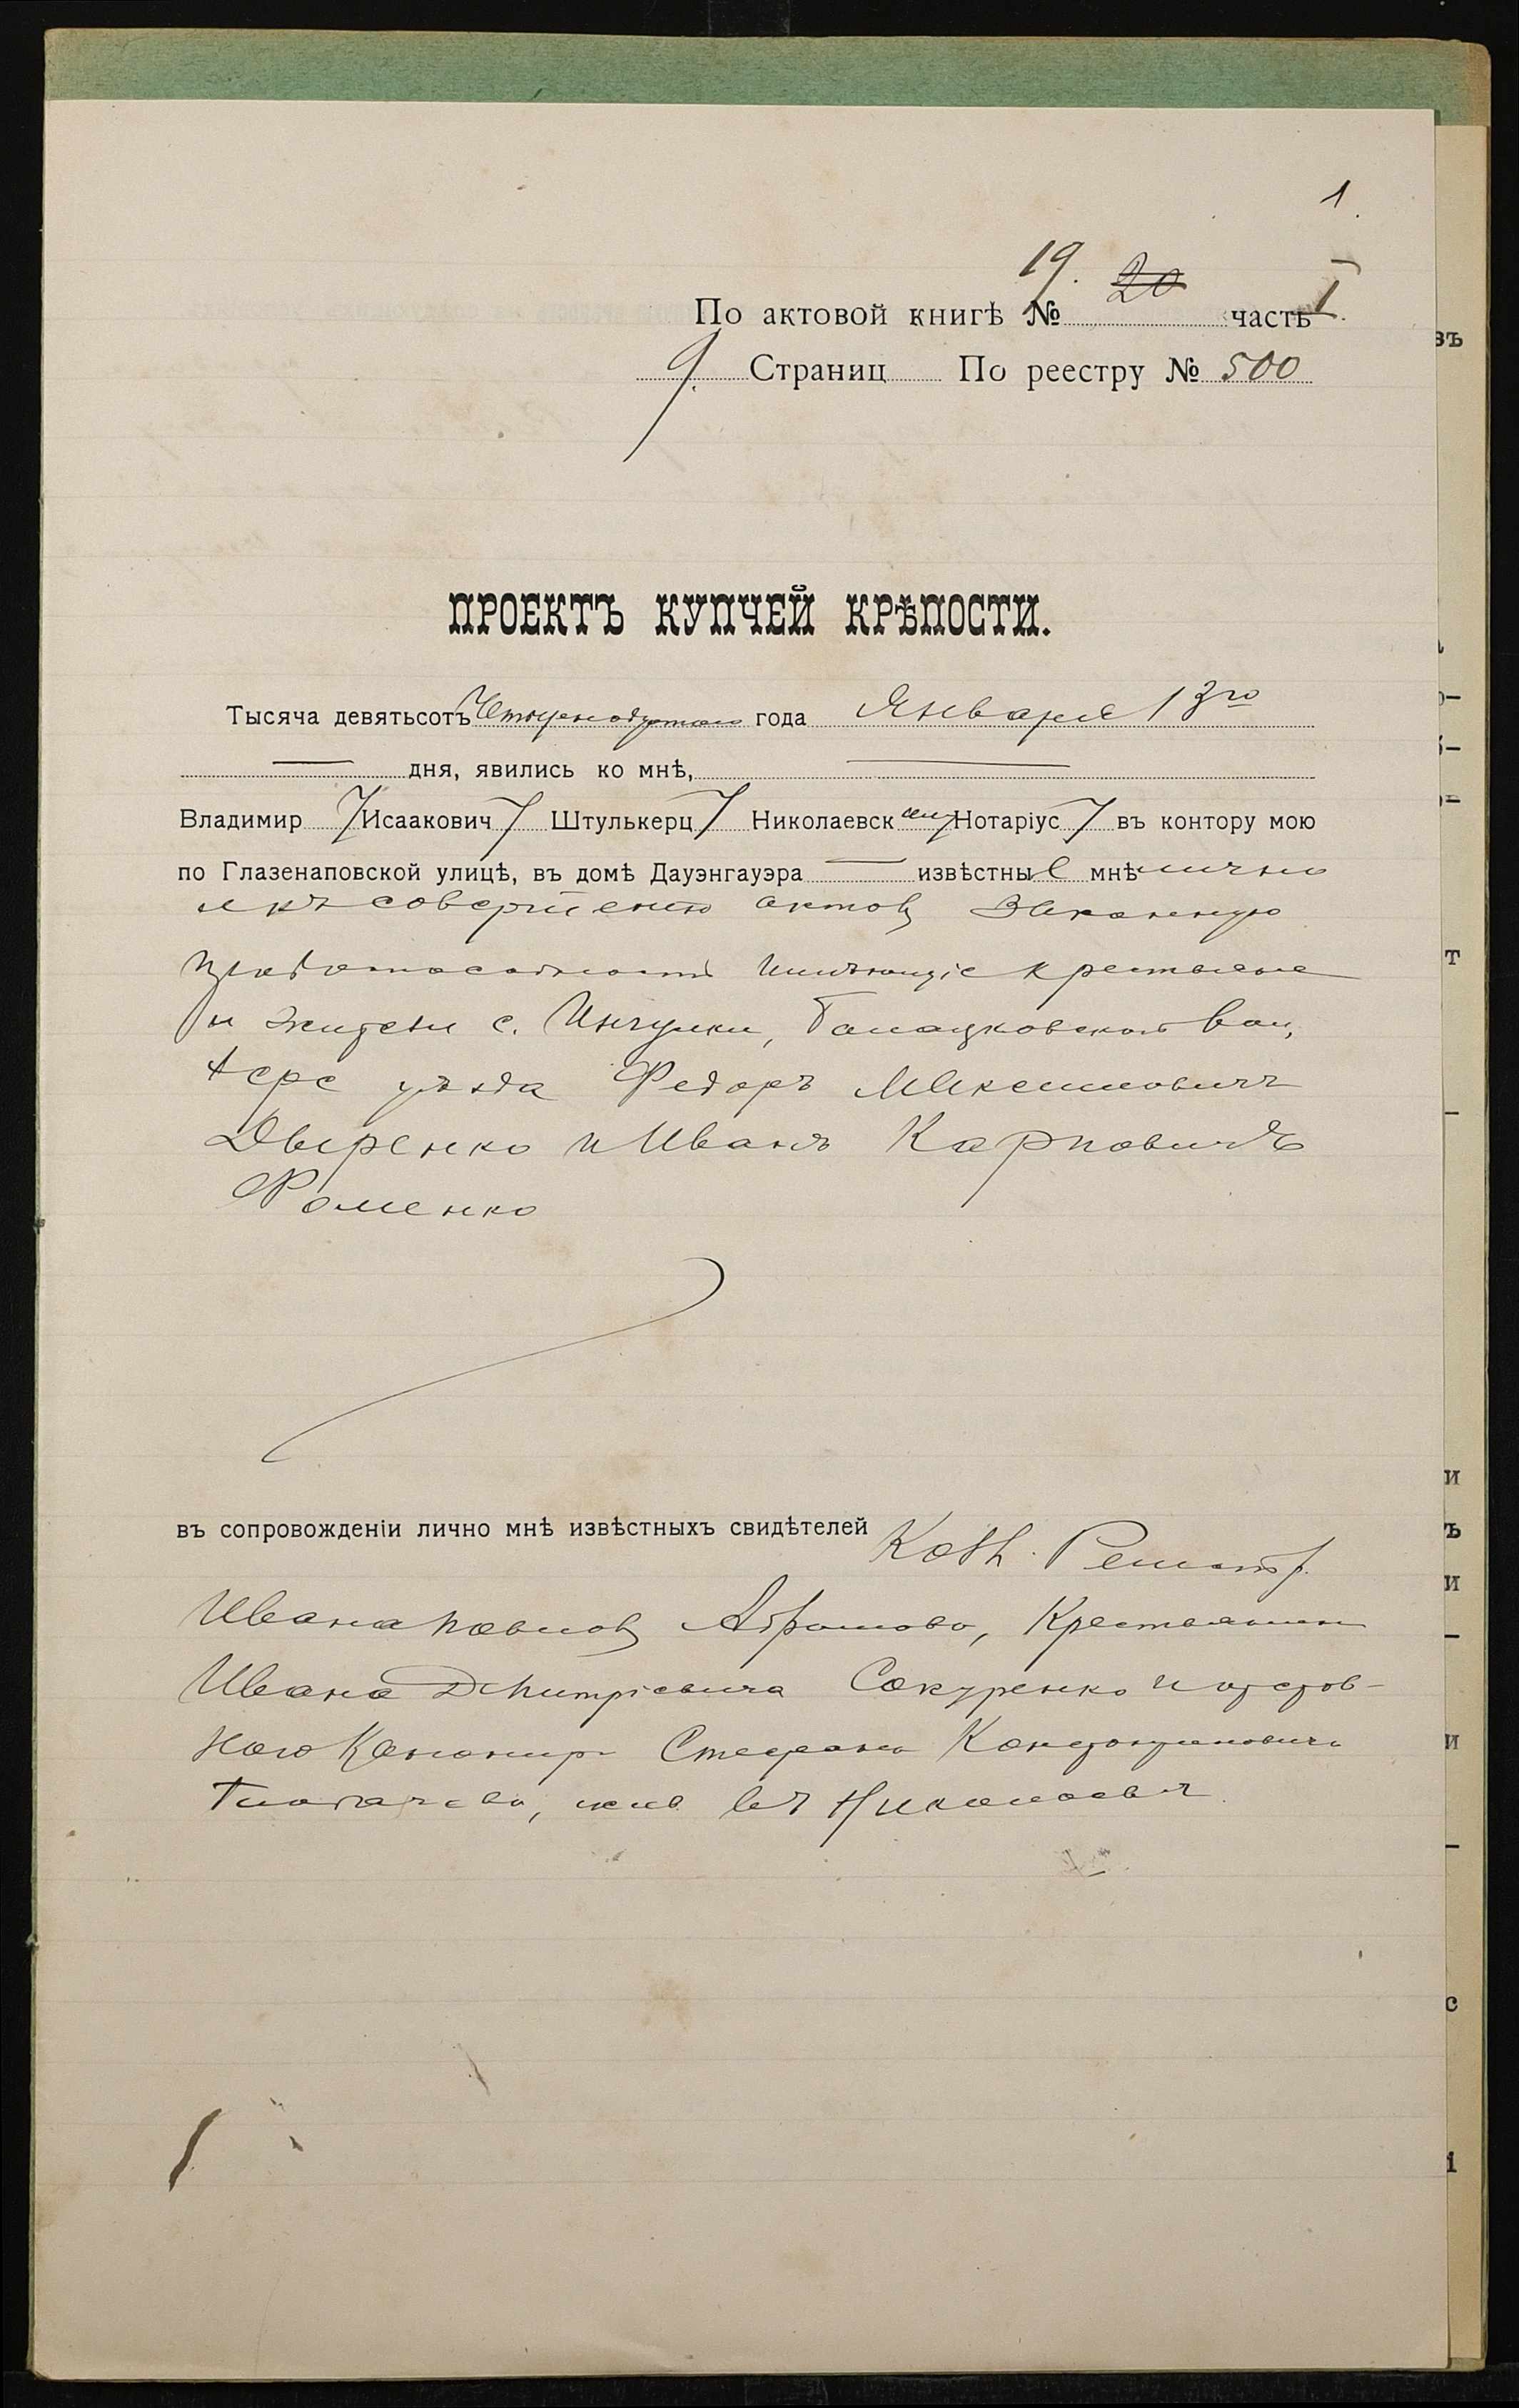 1.
19. 20
По актовой книгѣ № часть I.
9. Страниц По реестру № 500
ПРОЕКТЪ КУПЧЕЙ КРѢПОСТИ.
Тысяча девятьсотъ Четырнадцатаго года Января 13го
дня, явились ко мнѣ,
Владимир Исаакович Штулькерц Николаевск Нотаріус въ контору мою
по Глазенаповской улицѣ, въ домѣ Дауэнгауэра извѣстные мнѣ лично
и къ совершенію актов законную
правоспособность имѣющіе крестьяне
и жители с. Ингулки, вол,
Херс уѣзда Федоръ Максимовичъ
Дверенко и Иванъ Карповичъ
Фоменко
въ сопровожденіи лично мнѣ извѣстныхъ свидѣтелей
Ивана Павлов Абрамова, Крестьянин
Ивана Дмитріевича Сокуренко и отстав-
ного Канонир Стефана
жив въ Николаевѣ
въ
т
и
ъ
и
и
с
і